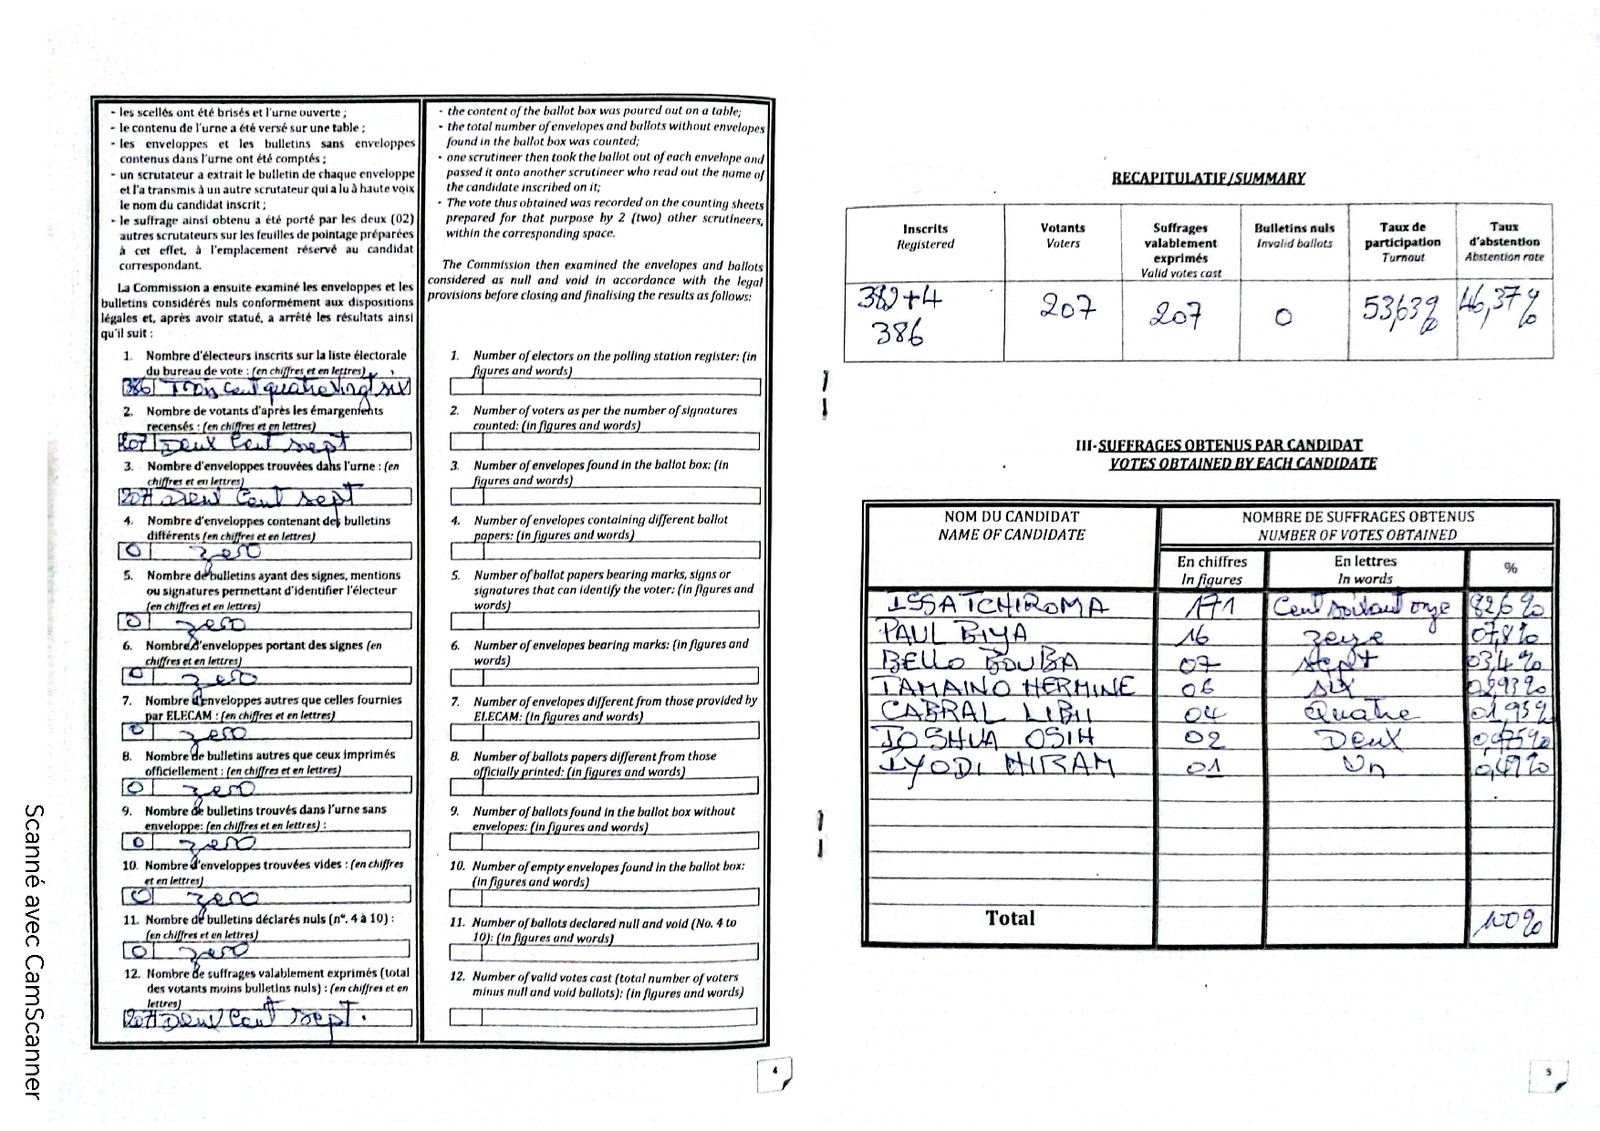 - les scellés ont été brisés et l'urne ouverte ;
- le contenu de l'urne a été versé sur une table ;
- les enveloppes et les bulletins sans enveloppes
contenus dans l'urne ont été comptés ;
- un scrutateur a extrait le bulletin de chaque enveloppe
et l'a transmis à un autre scrutateur qui a lu à haute voix
le nom du candidat inscrit ;
- le suffrage ainsi obtenu a été porté par les deux (02)
autres scrutateurs sur les feuilles de pointage préparées
à cet effet, à l'emplacement réservé au candidat
correspondant.
La Commission a ensuite examiné les enveloppes et les
bulletins considérés nuls conformément aux dispositions
légales et, après avoir statué, a arrêté les résultats ainsi
qu'il suit :
1. Nombre d'électeurs inscrits sur la liste électorale
du bureau de vote : (en chiffres et en lettres)
386 Trois cent quatre vingt six
2. Nombre de votants d'après les émargements
recensés : (en chiffres et en lettres)
207 Deux Cent sept
3. Nombre d'enveloppes trouvées dans l'urne : (en
chiffres et en lettres)
207 Deux Cent sept
4. Nombre d'enveloppes contenant des bulletins
différents (en chiffres et en lettres)
0 zero
5. Nombre de bulletins ayant des signes, mentions
ou signatures permettant d'identifier l'électeur
(en chiffres et en lettres)
0 zero
6. Nombre d'enveloppes portant des signes (en
chiffres et en lettres)
0 zero
7. Nombre d'enveloppes autres que celles fournies
par ELECAM : (en chiffres et en lettres)
0 zero
8. Nombre de bulletins autres que ceux imprimés
officiellement : (en chiffres et en lettres)
0 zero
9. Nombre de bulletins trouvés dans l'urne sans
enveloppe: (en chiffres et en lettres) :
0 zero
10. Nombre d'enveloppes trouvées vides : (en chiffres
et en lettres)
0 zero
11. Nombre de bulletins déclarés nuls (n°. 4 à 10) :
(en chiffres et en lettres)
0 zero
12. Nombre de suffrages valablement exprimés (total
des votants moins bulletins nuls) : (en chiffres et en
lettres)
207 Deux Cent sept.
- the content of the ballot box was poured out on a table;
- the total number of envelopes and ballots without envelopes
found in the ballot box was counted;
- one scrutineer then took the ballot out of each envelope and
passed it onto another scrutineer who read out the name of
the candidate inscribed on it;
- The vote thus obtained was recorded on the counting sheets
prepared for that purpose by 2 (two) other scrutineers,
within the corresponding space.
The Commission then examined the envelopes and ballots
considered as null and void in accordance with the legal
provisions before closing and finalising the results as follows:
1. Number of electors on the polling station register: (in
figures and words)
2. Number of voters as per the number of signatures
counted: (in figures and words)
3. Number of envelopes found in the ballot box: (in
figures and words)
4. Number of envelopes containing different ballot
papers: (in figures and words)
5. Number of ballot papers bearing marks, signs or
signatures that can identify the voter: (in figures and
words)
6. Number of envelopes bearing marks: (in figures and
words)
7. Number of envelopes different from those provided by
ELECAM: (in figures and words)
8. Number of ballots papers different from those
officially printed: (in figures and words)
9. Number of ballots found in the ballot box without
envelopes: (in figures and words)
10. Number of empty envelopes found in the ballot box:
(in figures and words)
11. Number of ballots declared null and void (No. 4 to
10): (in figures and words)
12. Number of valid votes cast (total number of voters
minus null and void ballots): (in figures and words)
4
RECAPITULATIF/SUMMARY
Inscrits Registered | Votants Voters | Suffrages valablement exprimés Valid votes cast | Bulletins nuls Invalid ballots | Taux de participation Turnout | Taux d'abstention Abstention rate
382+4 386 | 207 | 207 | 0 | 53,63% | 46,37%
III-SUFFRAGES OBTENUS PAR CANDIDAT
VOTES OBTAINED BY EACH CANDIDATE
NOM DU CANDIDAT NAME OF CANDIDATE | NOMBRE DE SUFFRAGES OBTENUS NUMBER OF VOTES OBTAINED
En chiffres In figures | En lettres In words | %
ISSA TCHIROMA 171 Cent soixant onze 82,6%
PAUL BIYA 16 zeize 07,8%
BELLO BOUBA 07 sept 03,4%
TAMAINO HERMINE 06 six 02,93%
CABRAL LIBII 04 Quatre 01,95%
JOSHUA OSIH 02 Deux 0,975%
IYODI HIRAM 01 Un 0,49%
Total 100%
5
Scanné avec CamScanner